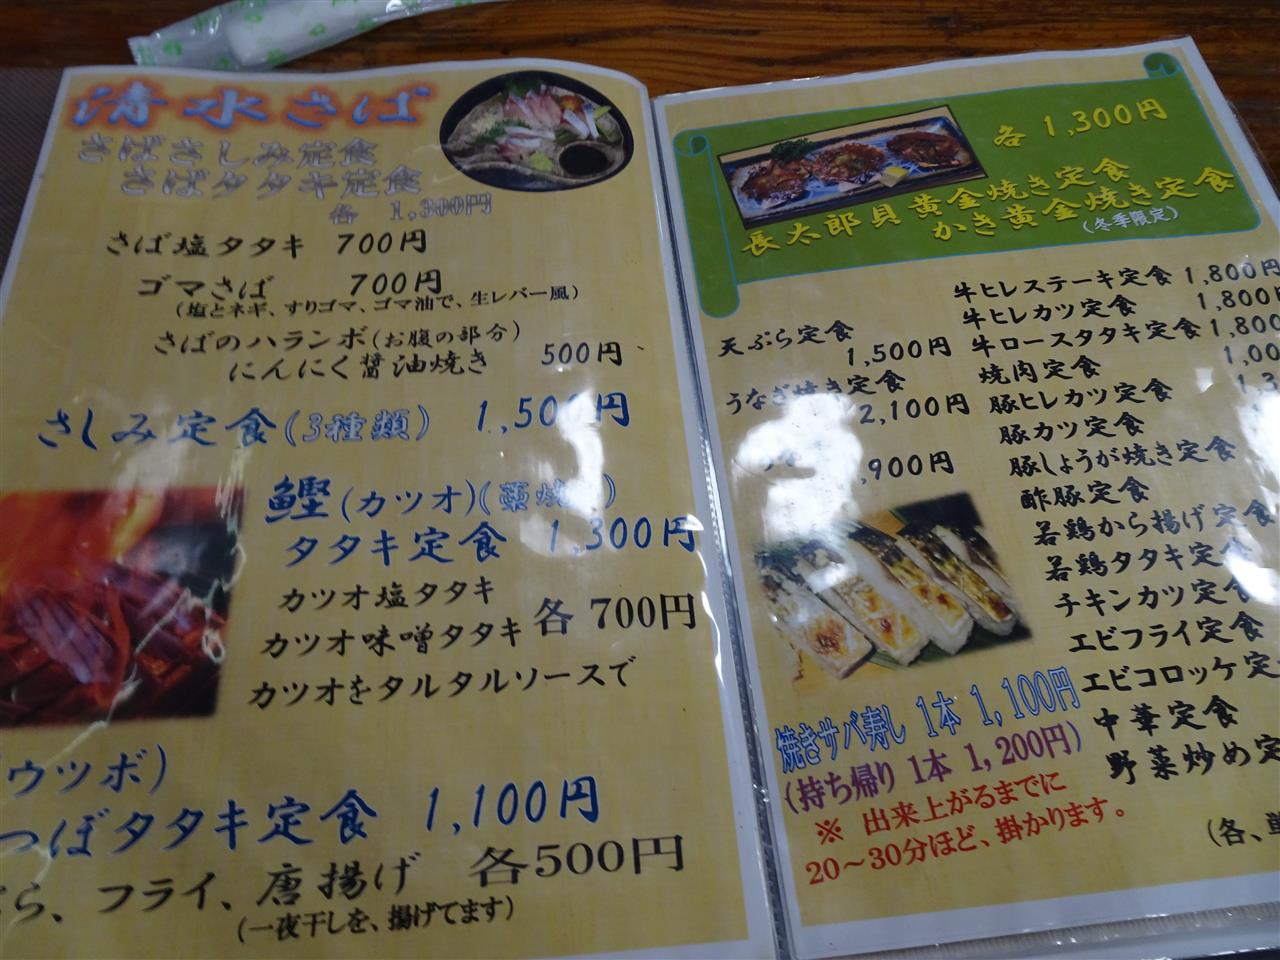 清水さば
さばさしみ定食
さばタタキ定食
各 1,300円
さば塩タタキ 700円
ゴマさば 700円
(塩とネギ、すりゴマ、ゴマ油で、生レバー風)
さばのハランボ(お腹の部分)
にんにく醤油焼き 500円
さしみ定食(3種類) 1,500円
鰹(カツオ)(藁焼
タタキ定食 1,300円
カツオ塩タタキ
カツオ味噌タタキ 各 700円
カツオをタルタルソースで
ウツボ)
つぼタタキ定食 1,100円
ら、フライ、唐揚げ 各500円
(一夜干しを、揚げてます)
各 1,300円
長太郎貝 黄金焼き定食
かき黄金焼き定食
(冬季限定)
天ぷら定食
1,500円
うなぎ焼き定食
2,100円
,900円
牛ヒレステーキ定食 1,800円
牛ヒレカツ定食 1,800
牛ロースタタキ定食 1,800
焼肉定食 1,00
豚ヒレカツ定食 1,3
豚カツ定食
豚しょうが焼き定食
酢豚定食
若鶏から揚げ定食
若鶏タタキ定食
チキンカツ定食
エビフライ定食
エビコロッケ定
中華定食
野菜炒め定
(各、単
焼きサバ寿し 1本 1,100円
(持ち帰り 1本 1,200円)
※ 出来上がるまでに
20～30分ほど、掛かります。